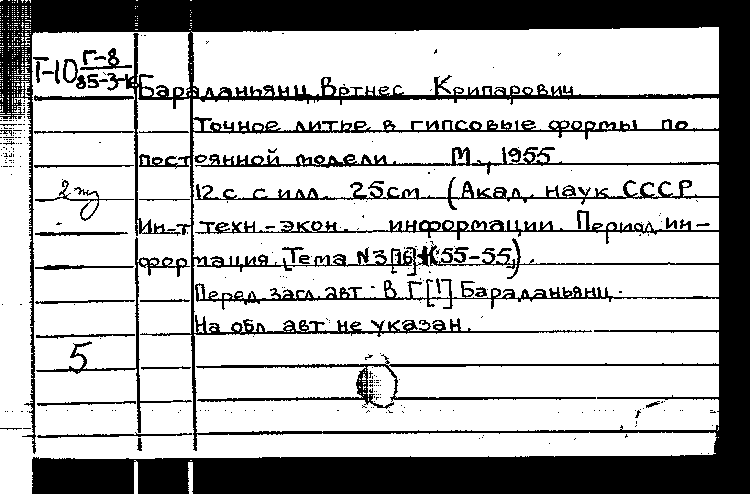 Т-10 Г-8
85-3-16
Бараданьянц Вртнес Крипарович
Точное литье в гипсовые формы по
постоянной модели. М., 1955.
12 с. с илл. 25см. (Акад. наук СССР
Ин-т техн.-экон. информации. Период. ин-
формация. Тема N3[16] (55-55).
Перед загл. авт: В Г[!] Бараданьянц.
На обл авт не указан.
2
5